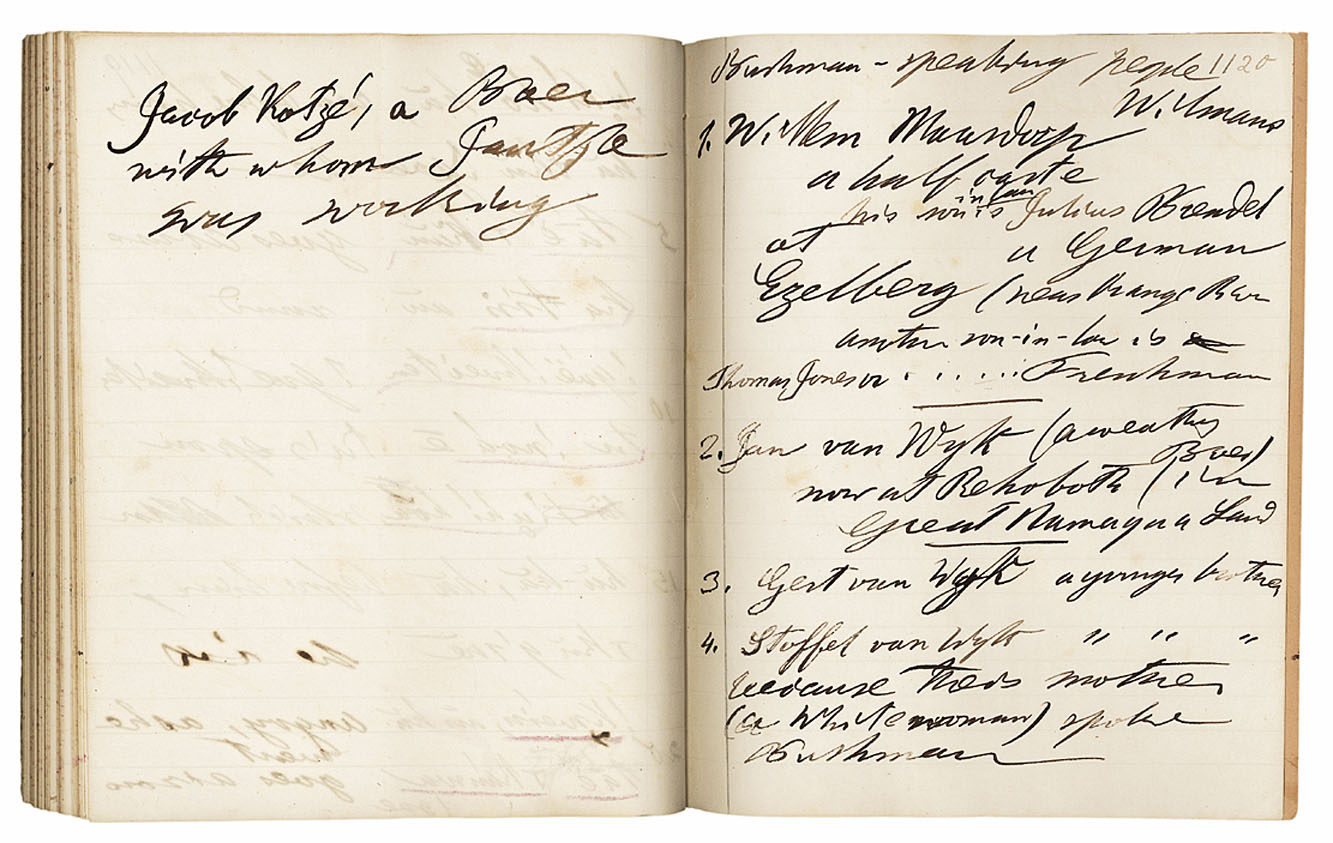 Jacob Kotzé, a Boer
with whom Jantje
was working
Bushman-speaking people 1120
Wilmans
1. Willem Maardorp
a half caste
in law
his son is Julius Brendel
at a German
Ezelberg (near Orange River
another son-in-law is
Thomas Jones or ...... Frenchman
2. Jan van Wyk (a wealthy
Boer)
now at Rehoboth (in
Great Namaqua Land
3. Gert van Wyk a younger brother
4. Stoffel van Wyk " " "
because theis mother
(a White woman) spoke
Bushman